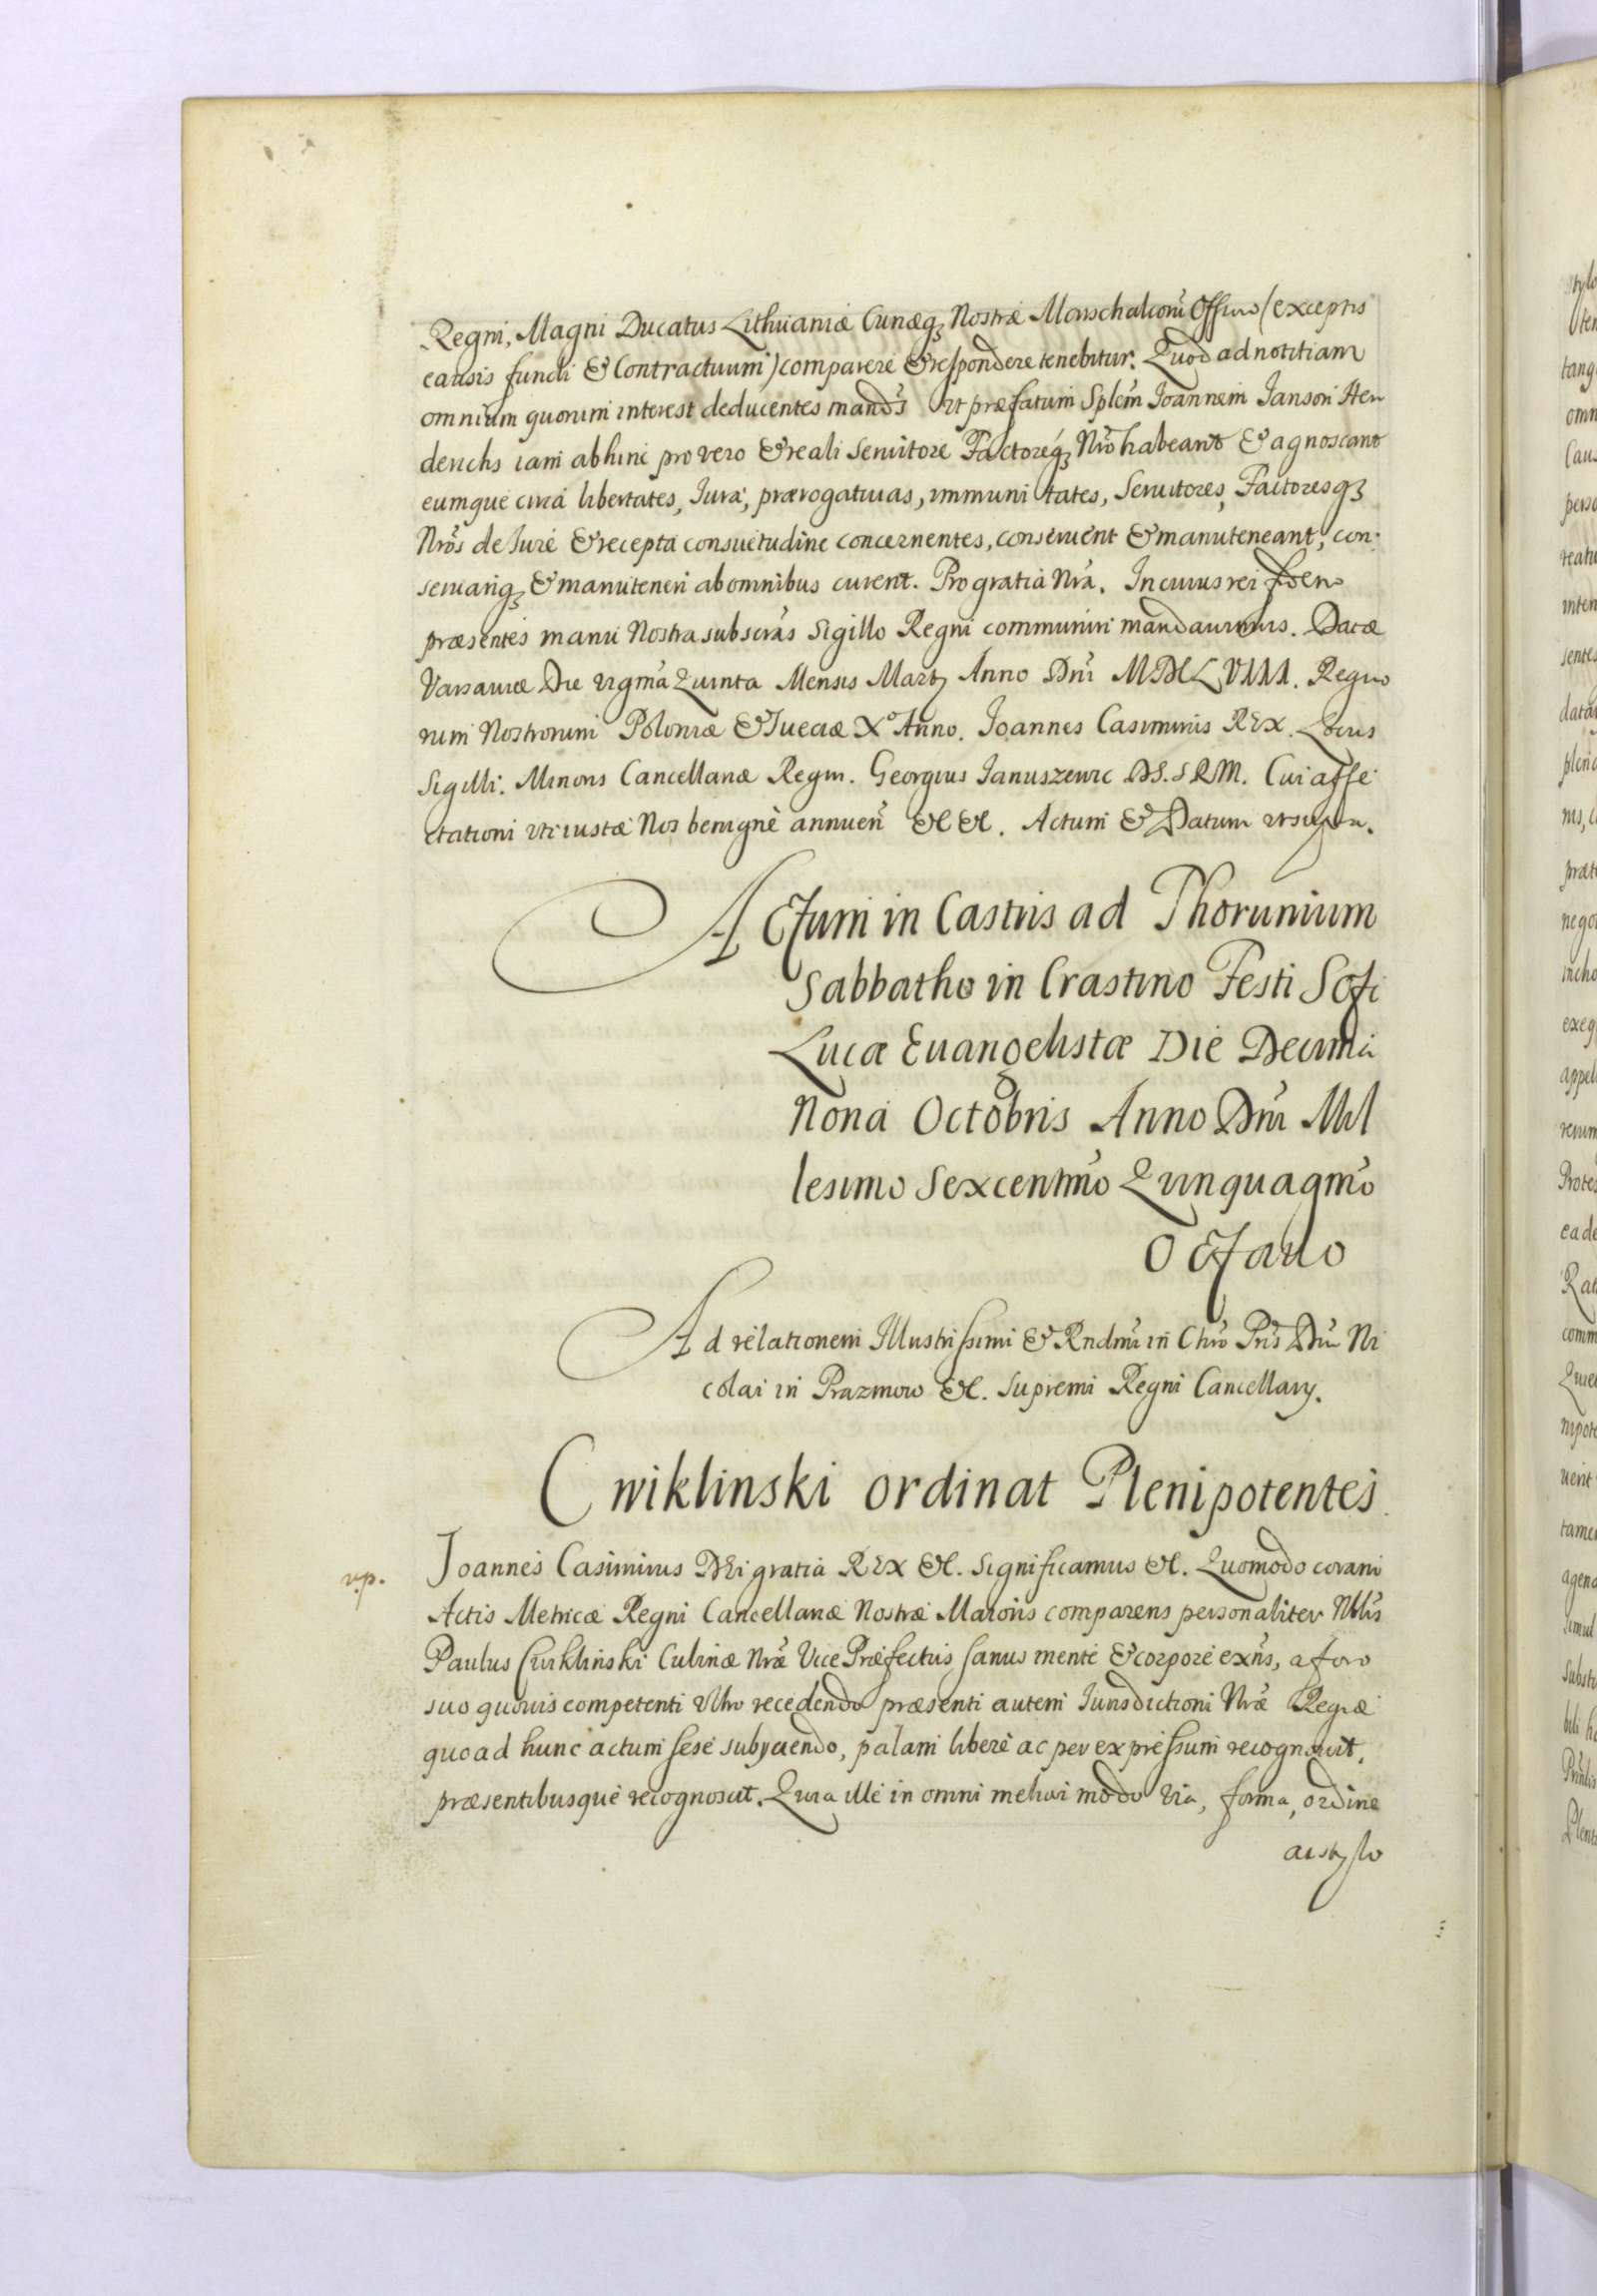 Regni, Magni Ducatus Lithuaniæ Curiæq3 Nostræ Marschalcorũ Officio (exceptis
causis fundi & Contractuum) comparere & respondere tenebitur. Quod ad notitiam
omnium quorum interest deducentes mandãs ut præfatum Splem Joannem Janson Hen
derichs iam abhinc pro vero & reali Servitore Factoreq3 Nrõ habeant & agnoscant
eumque circa libertates, Iura, prærogativas, immunitates, Servitores, Factoresq3
Nrõs de Iure & recepta consuetudine concernentes, conservent & manuteneant, con
servariq3 & manuteneri ab omnibus curent. Pro gratia Nrã. In cuius rei fidem
præsentes manu Nostra subscrãs Sigillo Regni communiri mandavimus. Datæ
Varsaviæ Die vigmã Quinta Mensis Marty Anno Dni MDCLVIII. Regno
rum Nostrorum Poloniæ & Sueciæ Xº Anno. Joannes Casimirus REX. Locus
Sigilli. Minoris Cancellariæ Regni. Georgius Ianuszewic DS. SRM. Cui affe
ctationi uti iustæ Nos benignè annuen̄ &c &c. Actum & Datum ut supra.
Actum in Castris ad Thorunium
Sabbatho in Crastino Festi Scti
Lucæ Euangelistæ Die Decima
Nona Octobris Anno Dni Mil
lesimo Sexcentmo Quinquagmo
Octavo
Ad relationem Illustrissimi & Rndmi in Chrõ Pris Dni Ni
colai in Prazmow &c. Supremi Regni Cancellary.
Cwiklinski ordinat Plenipotentes
v.p.
Joannes Casimirus DEi gratia REX &c. Significamus &c. Quomodo coram
Actis Metricæ Regni Cancellariæ Nostræ Maioris comparens personaliter Nblis
Paulus Cwiklinski Culinæ Nræ Vice Præfectus sanus mente & corpore exñs, a foro
suo quovis competenti ultro recedendo præsenti autem Iurisdictioni Nræ Regiæ
quoad hunc actum sese subyciendo, palam liberè ac per expressum recognovit,
præsentibusque recognoscit. Quia ille in omni meliori modo via, forma, ordine
ac stylo